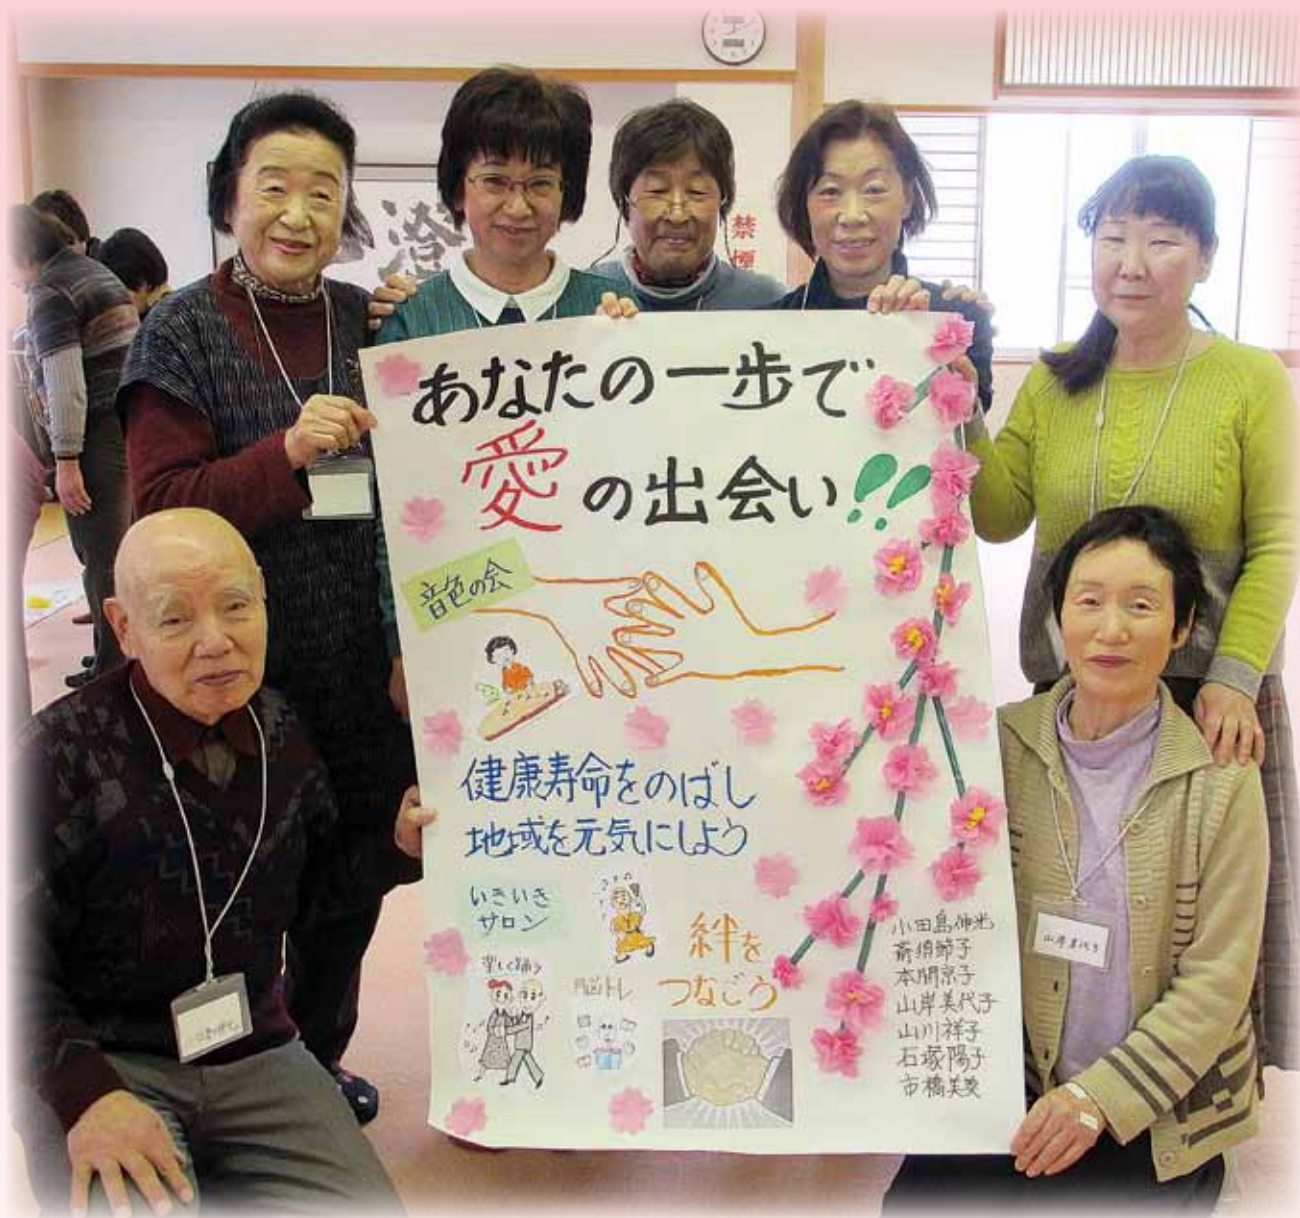 澄
禁煙
あなたの一歩で
愛の出会い!!
音色の会
健康寿命をのばし
地域を元気にしよう
いきいき
サロン
楽しく踊ろう
脳トレ
絆を
つなごう
小田島伸光
斎須節子
本間京子
山岸美代子
山川祥子
石塚陽子
市橋美英
山岸美代子